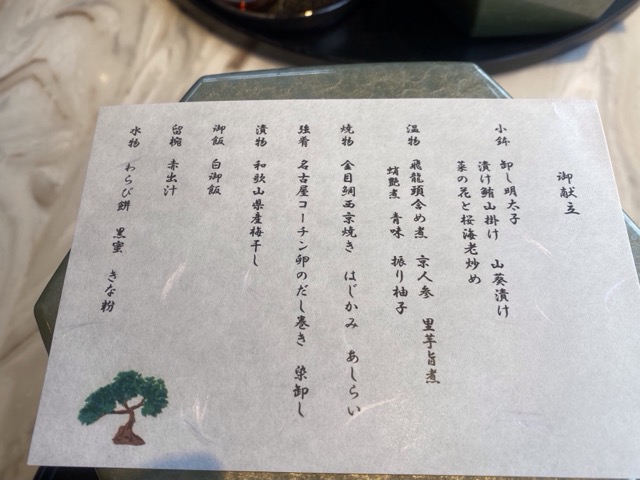 御献立
小鉢 卸し明太子
漬け鮪山掛け 山葵漬け
菜の花と桜海老炒め
温物 飛龍頭含め煮 京人参 里芋旨煮
蛸艶煮 青味 振り柚子
焼物 金目鯛西京焼き はじかみ あしらい
強肴 名古屋コーチン卵のだし巻き 染卸し
漬物 和歌山県産梅干し
御飯 白御飯
留椀 赤出汁
水物 わらび餅 黒蜜 きな粉